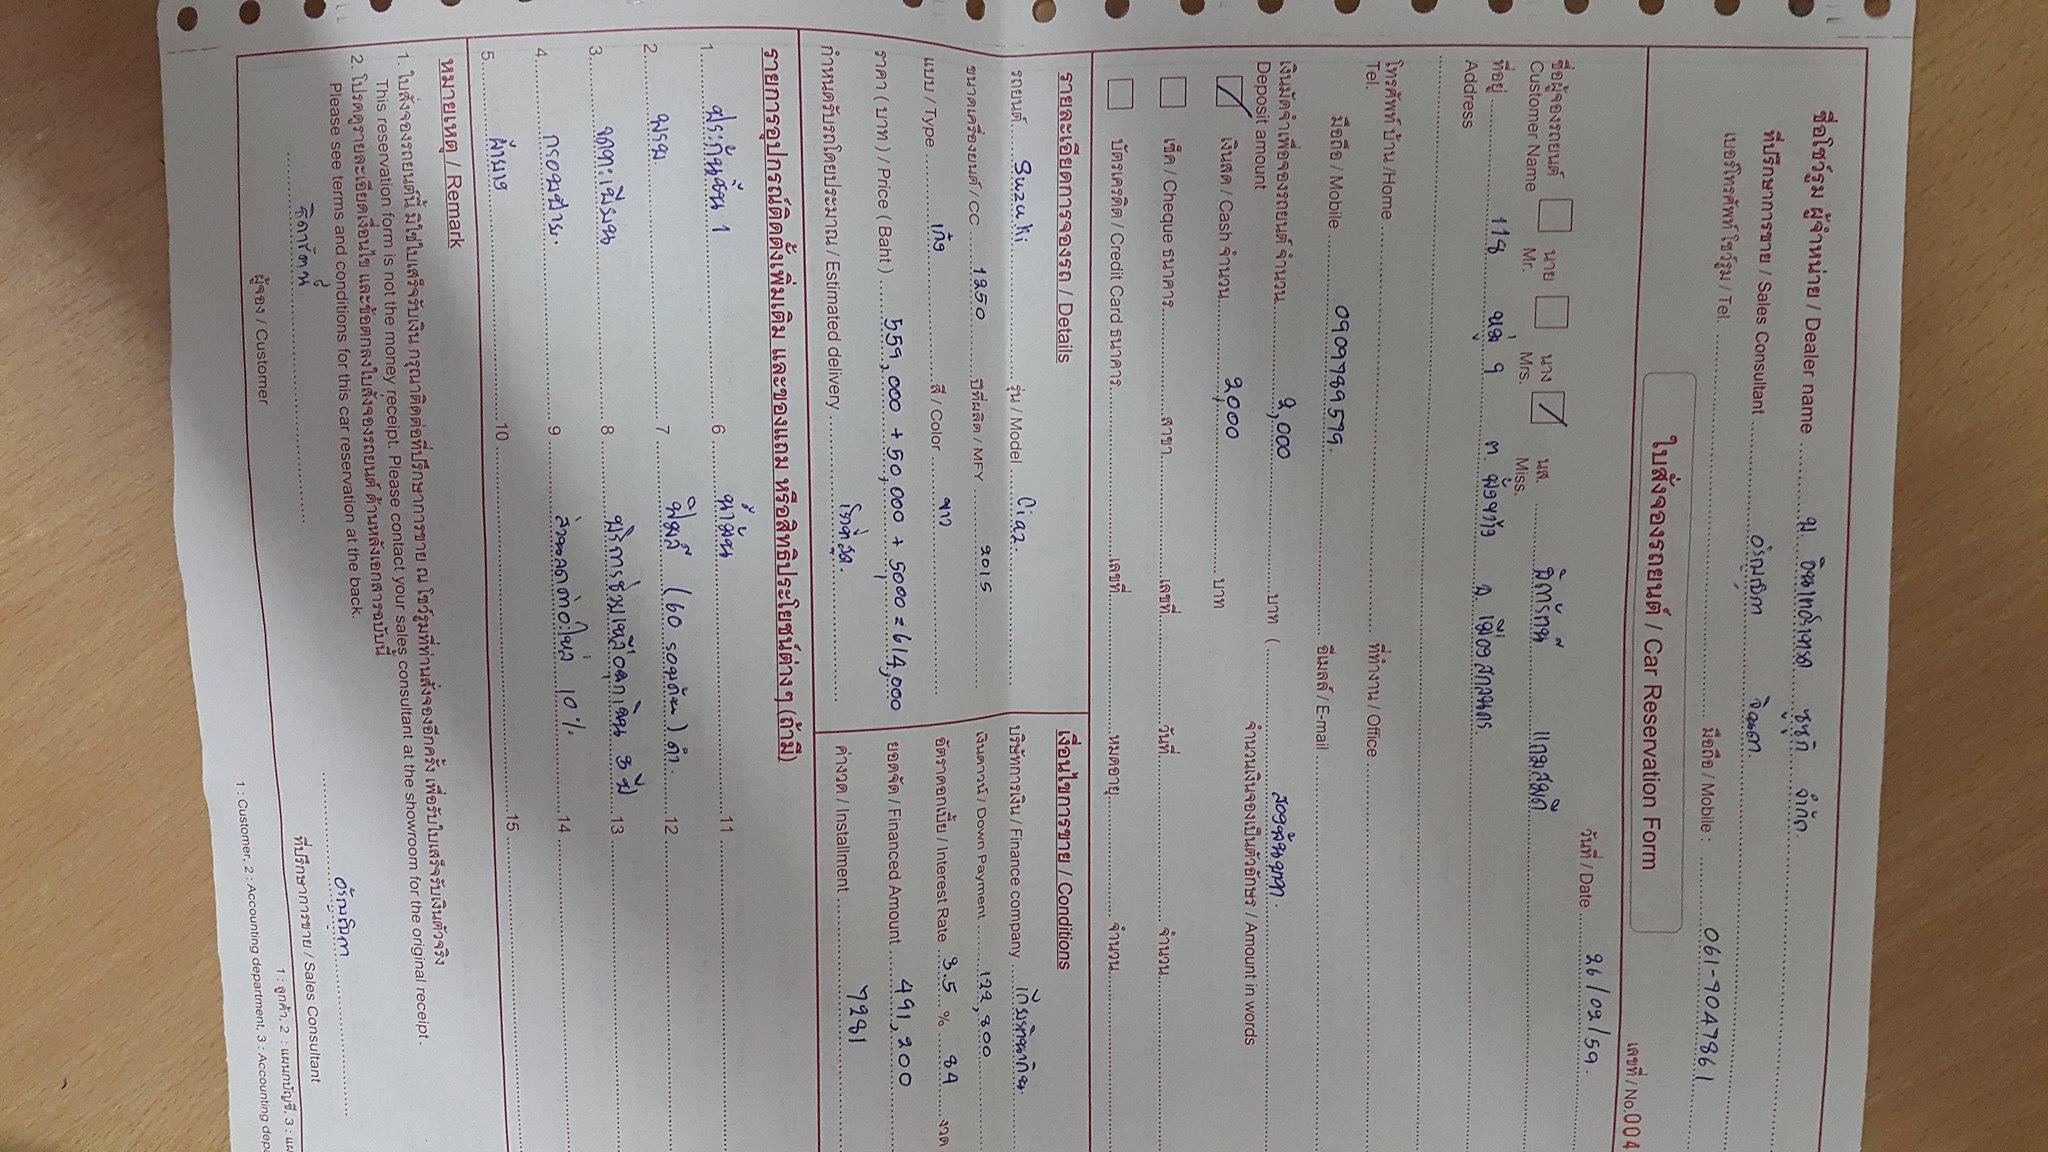 ชื่อโชว์รูม ผู้จำหน่าย / Dealer name บ. อินเทอร์เทรด ซูซูกิ จำกัด.
ที่ปรึกษาการขาย / Sales Consultant
เบอร์โทรศัพท์ โชว์รูม / Tel. มือถือ / Mobile : 061-9047861
ใบสั่งจองรถยนต์ / Car Reservation Form
เลขที่ / No. 004
วันที่ / Date 26/02/59.
ชื่อผู้จองรถยนต์ นาย นาง นส.
Customer Name Mr. Mrs. Miss.
ที่อยู่ 118 หมู่ 9 ต จ. เมืองสกลนคร
Address
โทรศัพท์ บ้าน /Home ที่ทำงาน / Office
Tel.
มือถือ / Mobile 0909789579. อีเมลล์ / E-mail
เงินมัดจำเพื่อจองรถยนต์ จำนวน 2,000 บาท ( สองพันบาท.
Deposit amount จำนวนเงินจองเป็นตัวอักษร / Amount in words
เงินสด / Cash จำนวน 2,000 บาท
เช็ค / Cheque ธนาคาร สาขา เลขที่ วันที่ จำนวน
บัตรเครดิต / Credit Card ธนาคาร เลขที่ หมดอายุ จำนวน
รายละเอียดการจองรถ / Details
รถยนต์ Suzuki รุ่น / Model Ciaz.
ขนาดเครื่องยนต์ / CC 1250 ปีที่ผลิต / MFY 2015
แบบ / Type เก๋ง สี / Color ขาว
ราคา ( บาท ) / Price ( Baht ) 559,000 + 50,000 + 5,000 = 614,000
กำหนดรับรถโดยประมาณ / Estimated delivery เร็วที่สุด.
เงื่อนไขการขาย / Conditions
บริษัทการเงิน / Finance company เกียรตินาคิน.
เงินดาวน์ / Down Payment 122,800
อัตราดอกเบี้ย / Interest Rate 3.5 % 84 งวด
ยอดจัด / Financed Amount 491,200
ค่างวด / Installment 7281
รายการอุปกรณ์ติดตั้งเพิ่มเติม และของแถม หรือสิทธิประโยชน์ต่างๆ (ถ้ามี)
1. ประกันชั้น 1 6 น้ำมัน 11
2. พรม 7 ฟิมล์ (60 รอบคัน) ดำ. 12
3 จดทะเบียน 8 บริการช่วยเหลือฉุกเฉิน 3 ปี 13
4 กรอบป้าย. 9 ส่วนลดค่าอะไหล่ 10%. 14
5 ผ้ายาง 10 15
หมายเหตุ / Remark
1. ใบสั่งจองรถยนต์นี้ มิใช่ใบเสร็จรับเงิน กรุณาติดต่อที่ปรึกษาการขาย ณ โชว์รูมที่ท่านสั่งจองอีกครั้ง เพื่อรับใบเสร็จรับเงินตัวจริง
This reservation form is not the money receipt. Please contact your sales consultant at the showroom for the original receipt.
2. โปรดดูรายละเอียดเงื่อนไข และข้อตกลงใบสั่งจองรถยนต์ ด้านหลังเอกสารฉบับนี้
Please see terms and conditions for this car reservation at the back.
ผู้จอง / Customer
ที่ปรึกษาการขาย / Sales Consultant
1 : ลูกค้า, 2 : แผนกบัญชี, 3 :
1 : Customer, 2 : Accounting department, 3 : Accounting